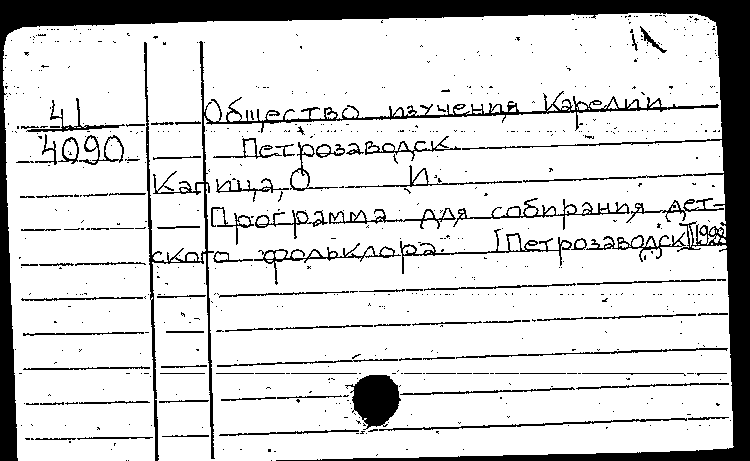 41
Общество изучения Карелии.
4090
Петрозаводск.
Капица, О И.
Программа для собирания дет-
ского фольклора. [Петрозаводск]